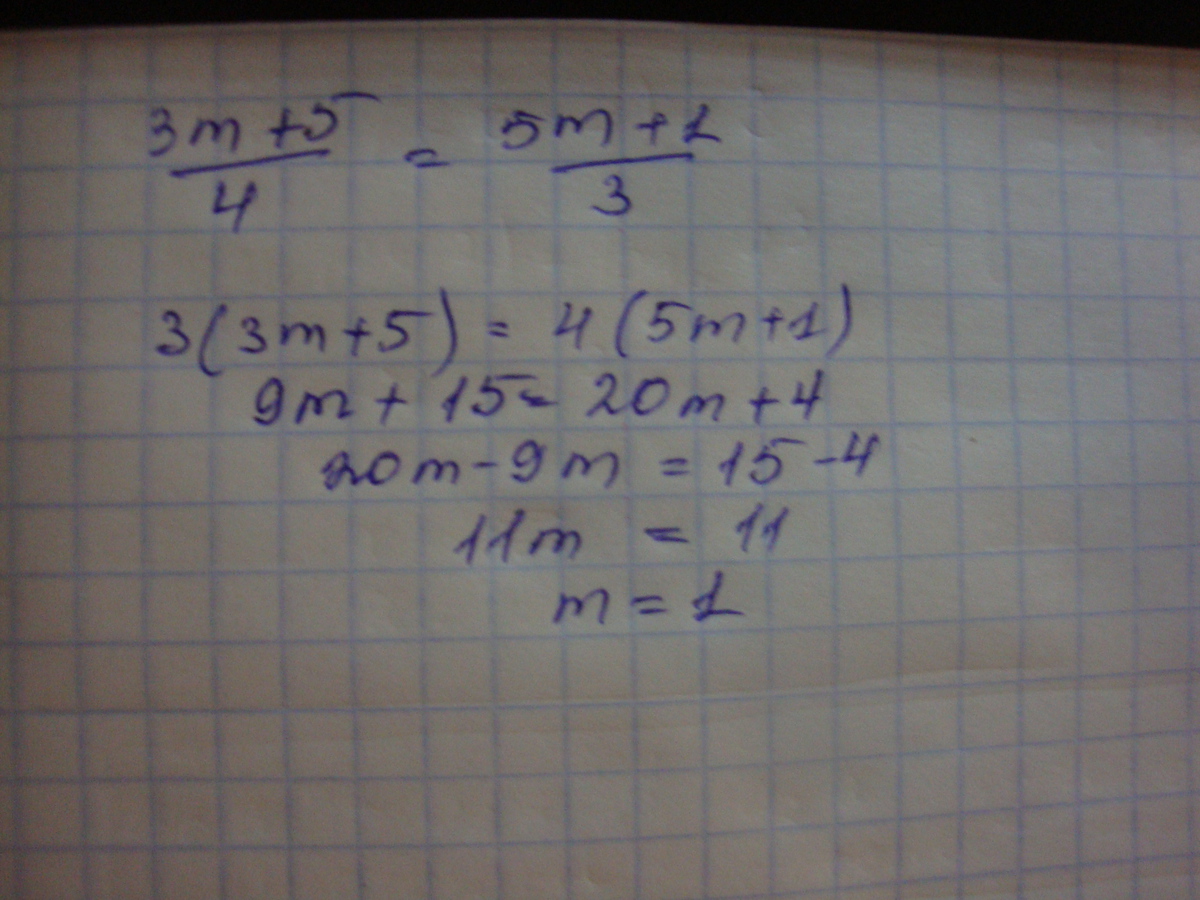 (3m+5)/4 = (5m+1)/3
3(3m+5) = 4(5m+1)
9m+15=20m+4
20m-9m=15-4
11m = 11
m=1